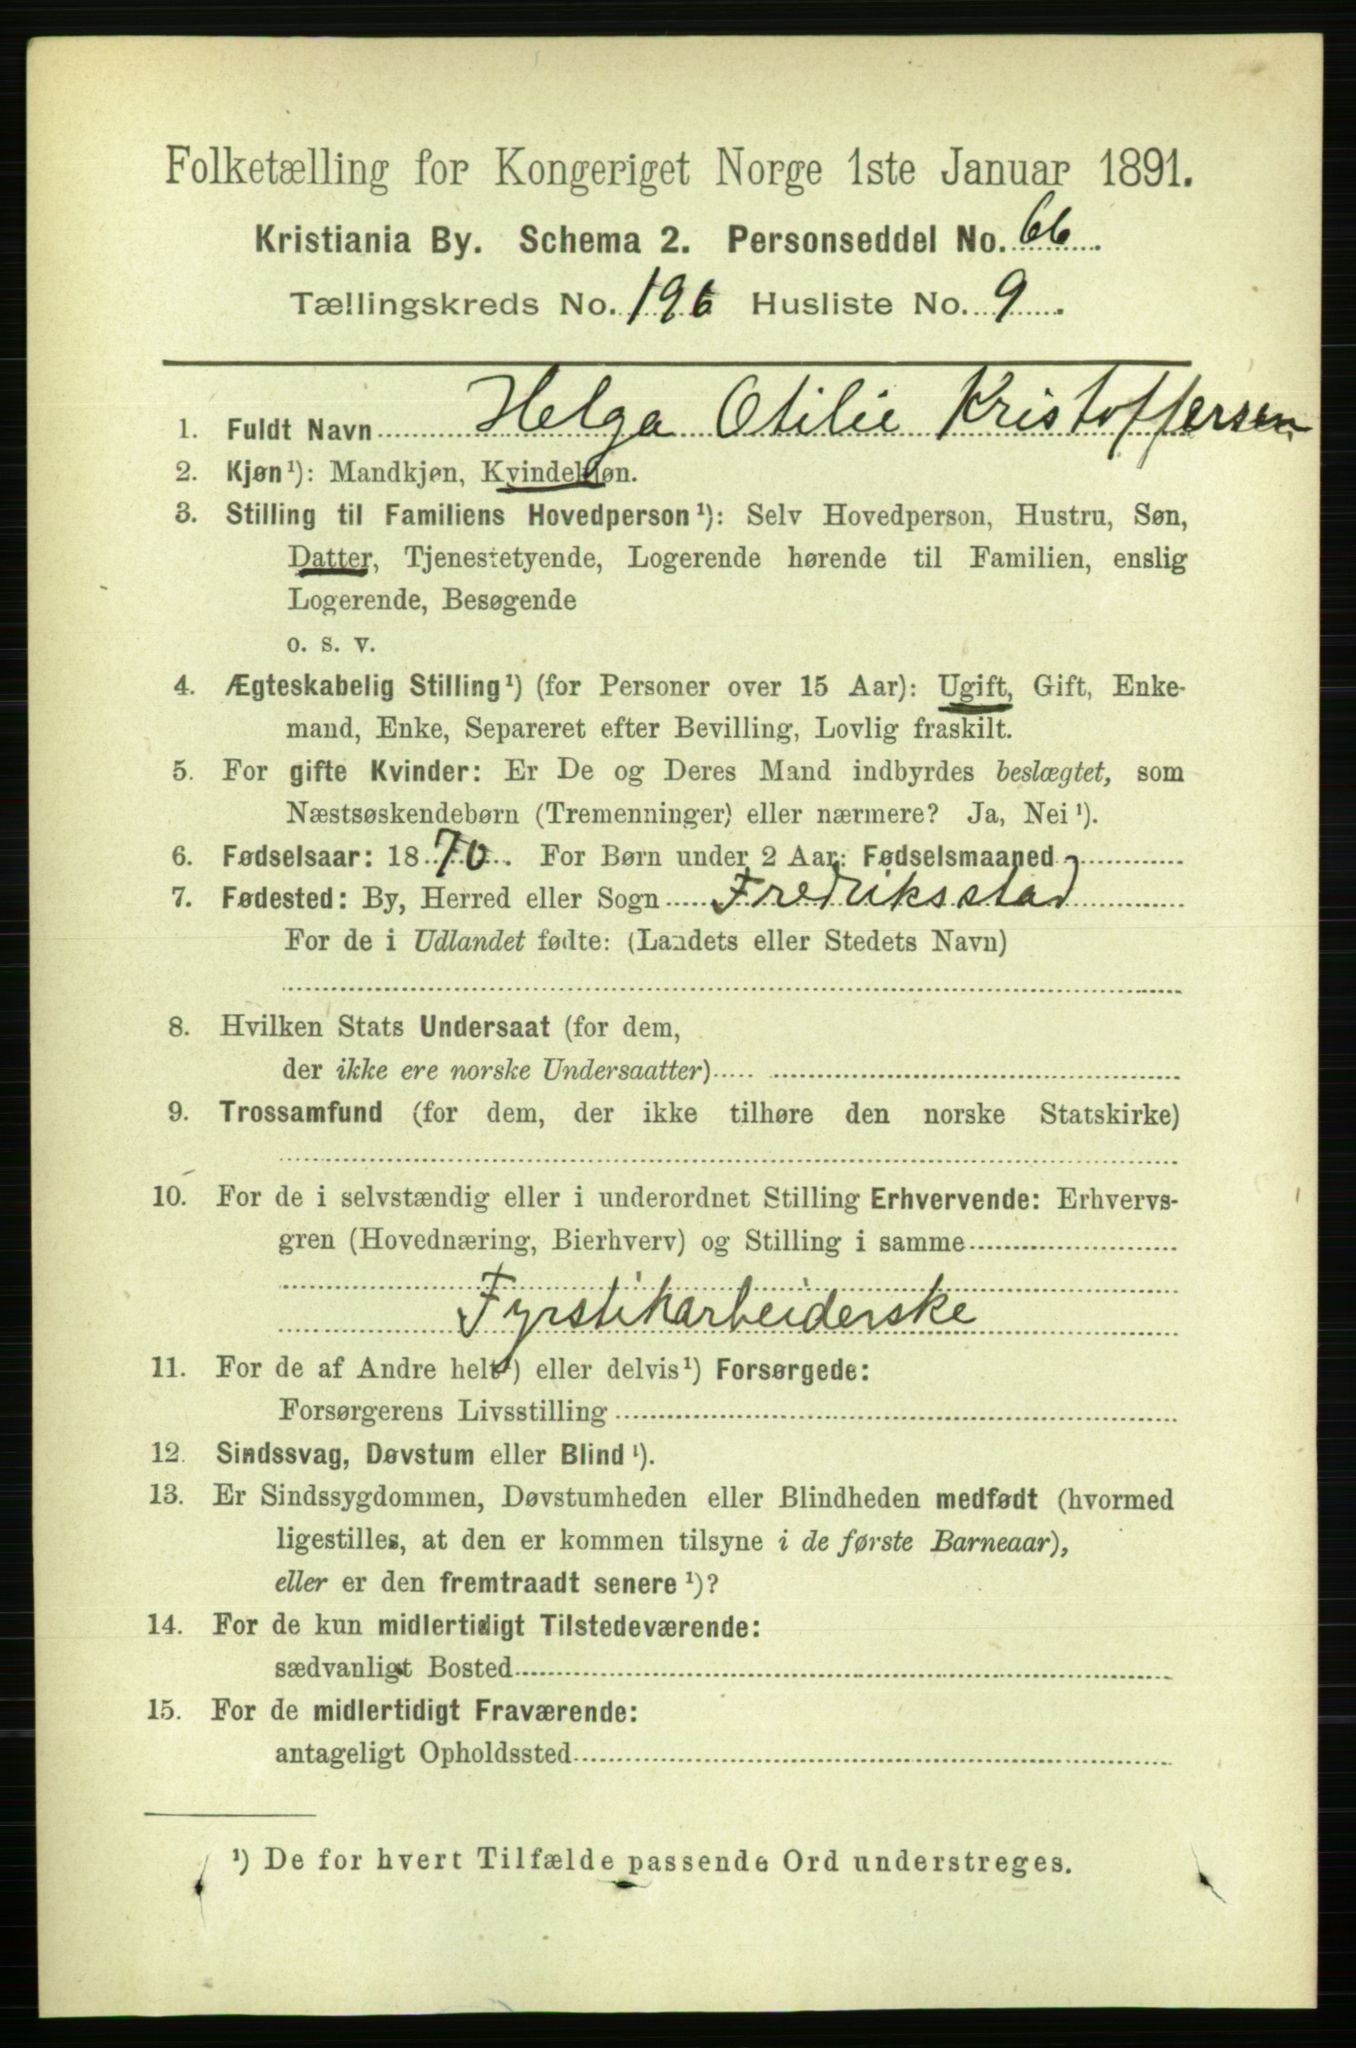 Folketælling for Kongeriget Norge 1ste Januar 1891.
Kristiania By. Schema 2. Personseddel No. 66.
Tællingskreds No. 196 Husliste No. 9.
1. Fuldt Navn Helga Otilie Kristoffersen
2. Kjøn¹): Mandkjøn, Kvindekjøn.
3. Stilling til Familiens Hovedperson¹): Selv Hovedperson, Hustru, Søn,
Datter, Tjenestetyende, Logerende hørende til Familien, enslig
Logerende, Besøgende
o. s. v.
4. Ægteskabelig Stilling¹) (for Personer over 15 Aar): Ugift, Gift, Enke-
mand, Enke, Separeret efter Bevilling, Lovlig fraskilt.
5. For gifte Kvinder: Er De og Deres Mand indbyrdes beslægtet, som
Næstsøskendebørn (Tremenninger) eller nærmere? Ja, Nei¹).
6. Fødselsaar: 1870. For Børn under 2 Aar: Fødselsmaaned
7. Fødested: By, Herred eller Sogn Fredriksstad
For de i Udlandet fødte: (Landets eller Stedets Navn)
8. Hvilken Stats Undersaat (for dem,
der ikke ere norske Undersaatter)
9. Trossamfund (for dem, der ikke tilhøre den norske Statskirke)
10. For de i selvstændig eller i underordnet Stilling Erhvervende: Erhvervs-
gren (Hovednæring, Bierhverv) og Stilling i samme
Fyrstikarbeiderske
11. For de af Andre helt¹) eller delvis¹) Forsørgede:
Forsørgerens Livsstilling
12. Sindssvag, Døvstum eller Blind¹).
13. Er Sindssygdommen, Døvstumheden eller Blindheden medfødt (hvormed
ligestilles, at den er kommen tilsyne i de første Barneaar),
eller er den fremtraadt senere¹)?
14. For de kun midlertidigt Tilstedeværende:
sædvanligt Bosted
15. For de midlertidigt Fraværende:
antageligt Opholdssted
¹) De for hvert Tilfælde passende Ord understreges.